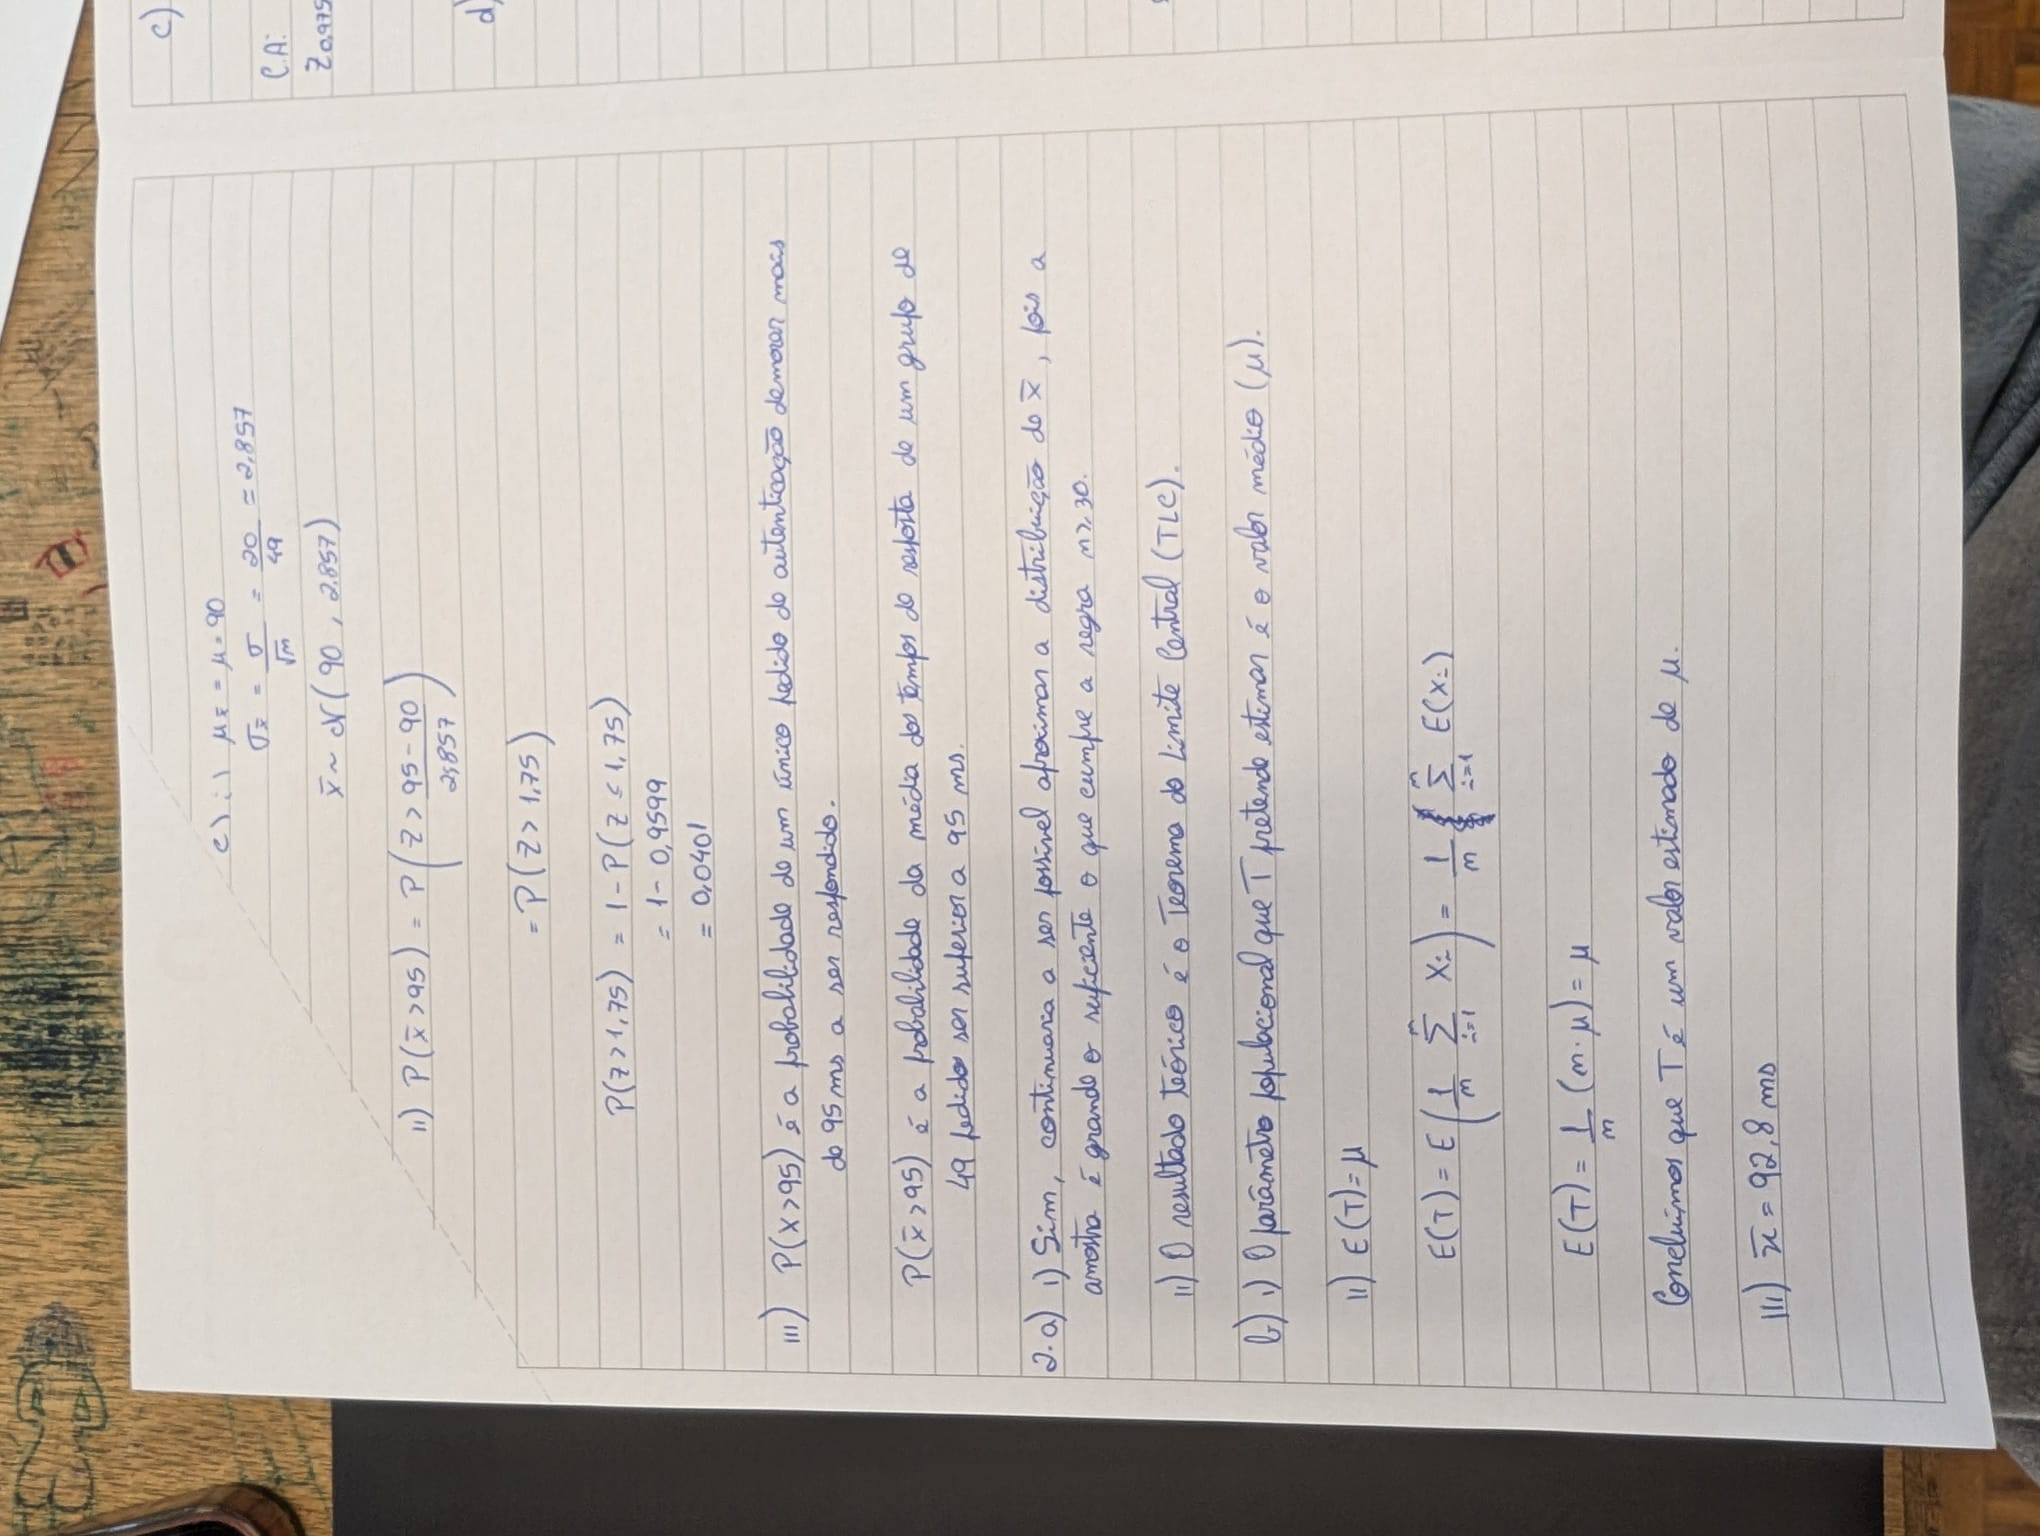 c) i) μx̄ = μ = 90
σx̄ = σ/√n = 20/49 = 2,857
x̄ ~ N(90, 2.857)
ii) P(x̄ > 95) = P(Z > (95 - 90)/2,857)
= P(Z > 1,75)
P(Z > 1,75) = 1 - P(Z ≤ 1,75)
= 1 - 0,9599
= 0,0401
iii) P(X > 95) é a probabilidade de um único pedido de autenticação demorar mais
de 95 ms a ser respondido.
P(x̄ > 95) é a probabilidade da média dos tempos de resposta de um grupo de
49 pedidos ser superior a 95 ms.
2. a) i) Sim, continuaria a ser possível aproximar a distribuição de x̄, pois a
amostra é grande o suficiente o que cumpre a regra n ≥ 30.
ii) O resultado teórico é o Teorema do Limite Central (TLC).
b) i) O parâmetro populacional que T pretende estimar é o valor médio (μ).
ii) E(T) = μ
E(T) = E(1/n Σ_{i=1}^{n} Xi) = 1/n Σ_{i=1}^{n} E(Xi)
E(T) = 1/n (n · μ) = μ
Concluímos que T é um valor estimado de μ.
iii) x̄ = 92,8 ms
c)
C.A:
Z0,975
d)